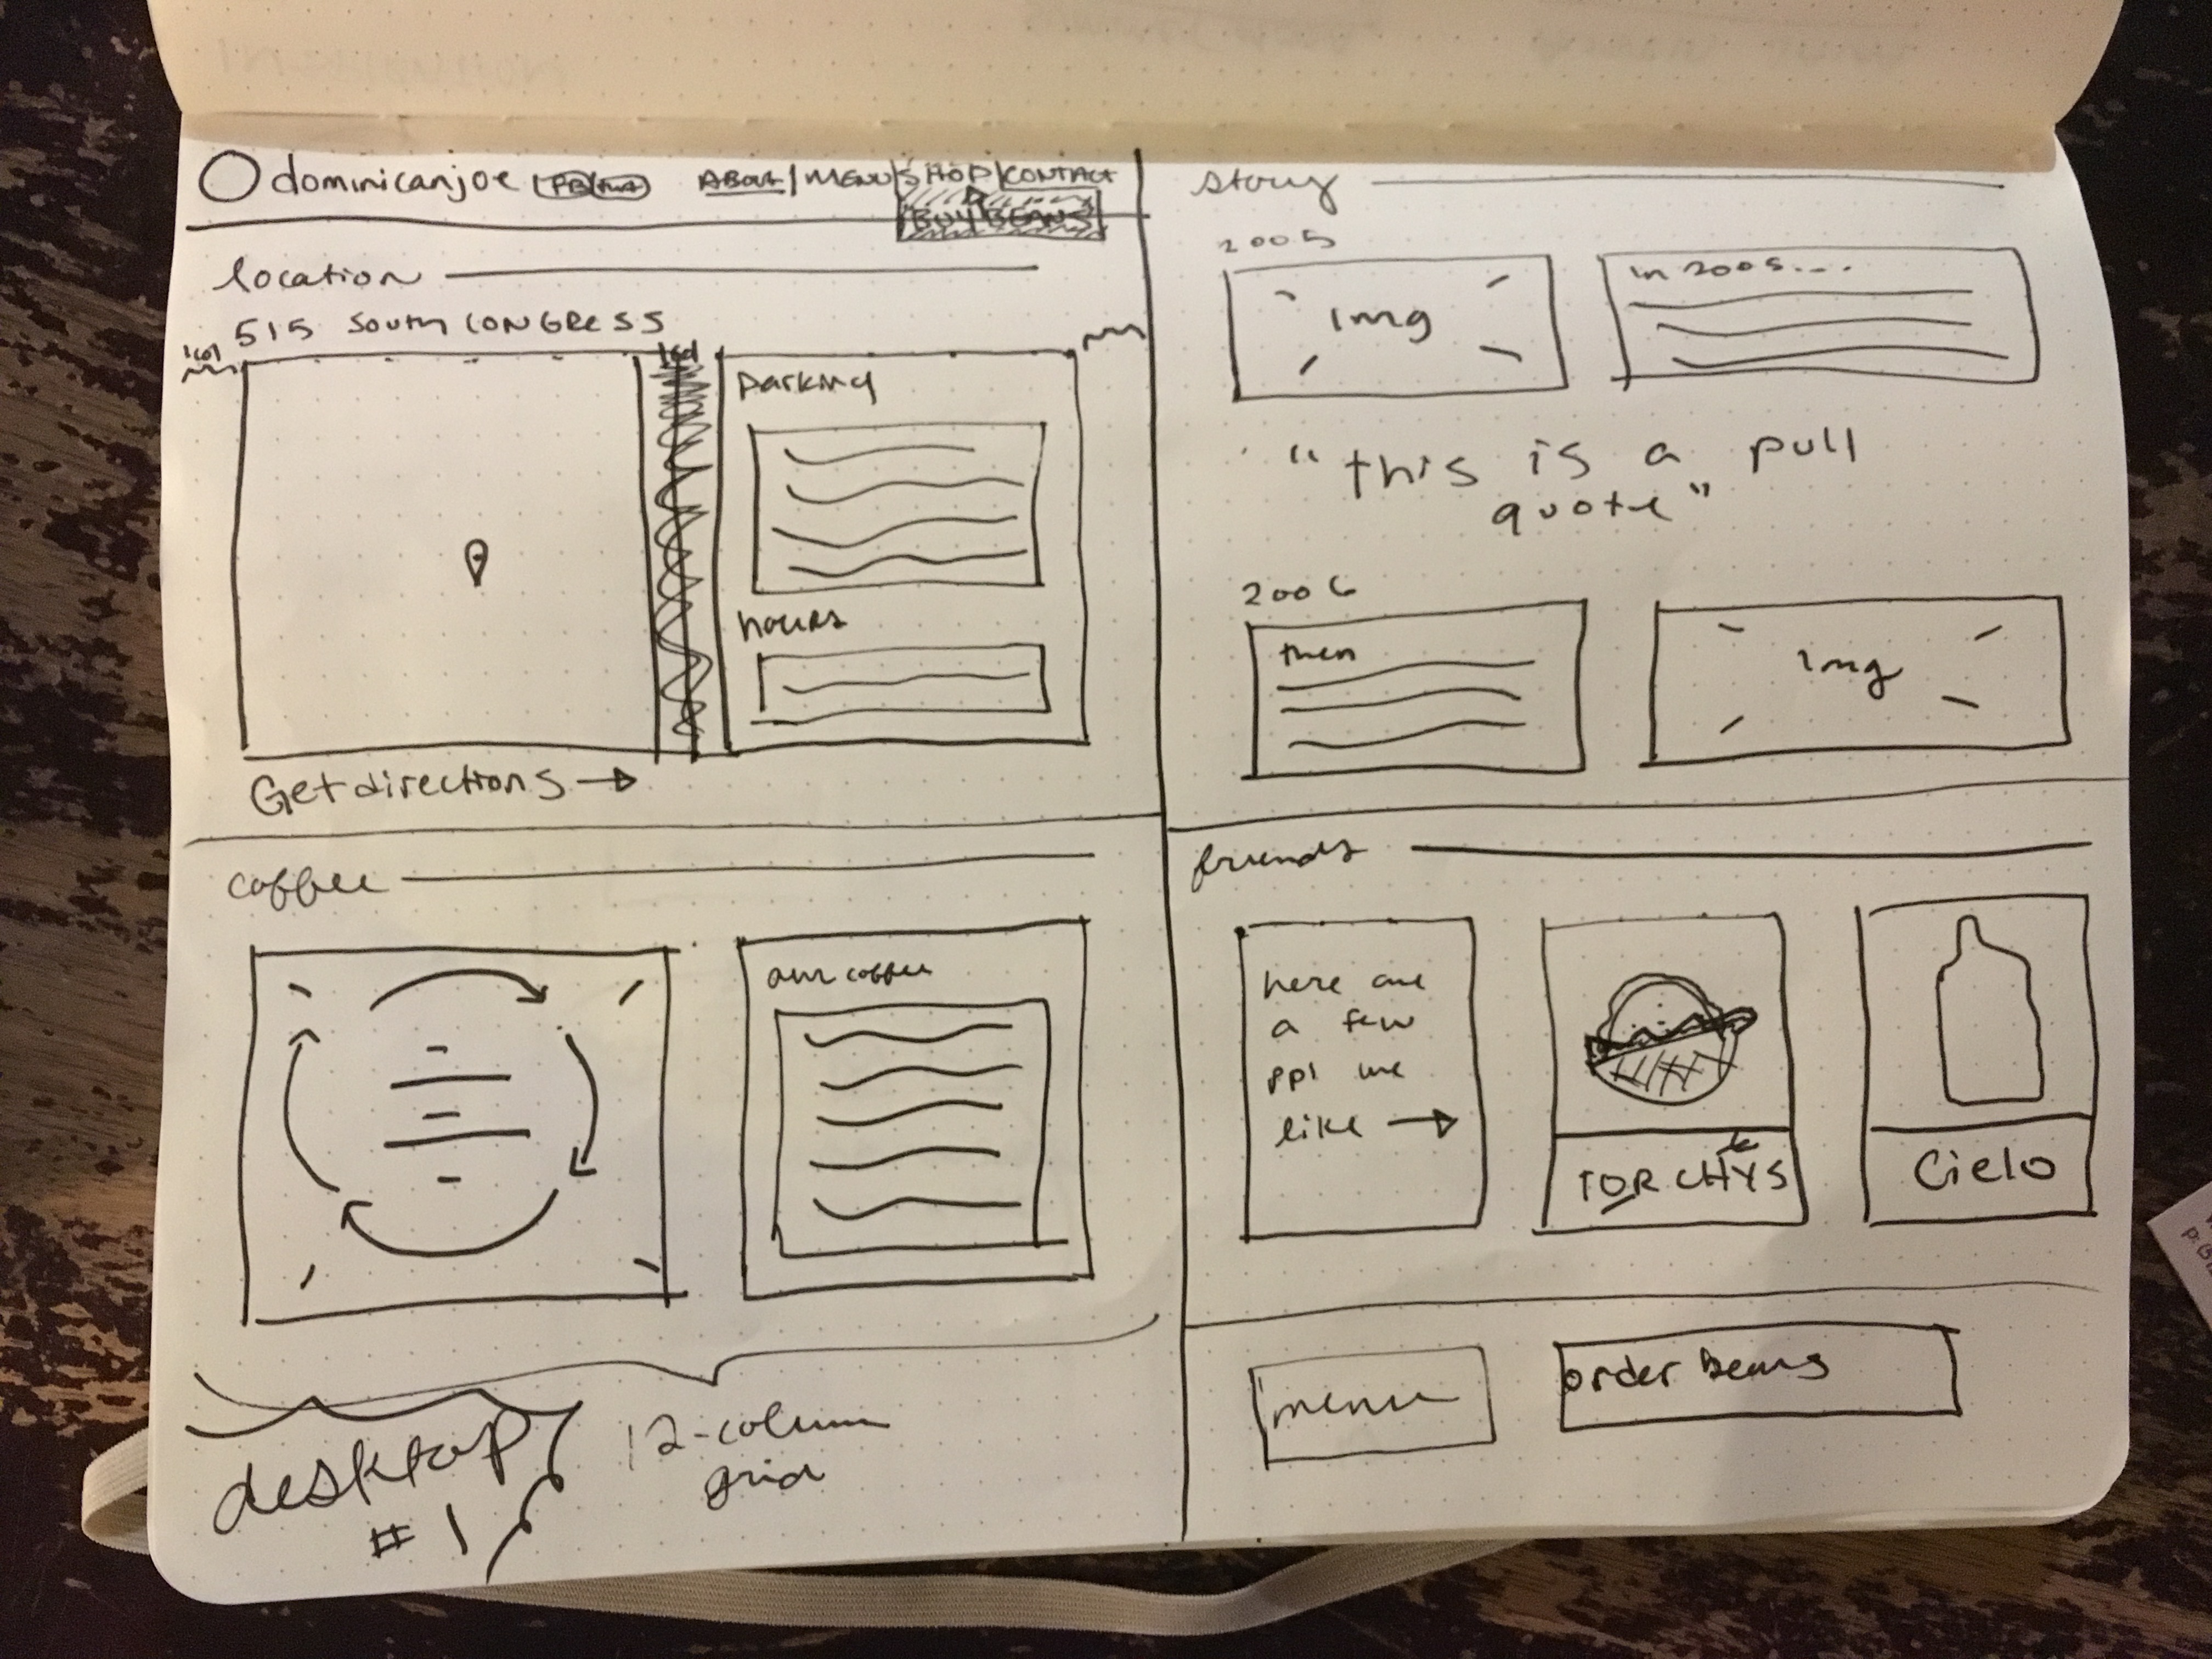 dominicanjoe
ABOUT / MENU / SHOP / CONTACT
BUY BEANS
location
515 SOUTH CONGRESS
Parking
hours
Get directions →
coffee
our coffee
desktop
#1
12-column
grid
story
2005
img
in 2005...
"this is a pull
quote"
2006
then
img
friends
here are
a few
ppl we
like →
TORCHYS
Cielo
menu
order beans